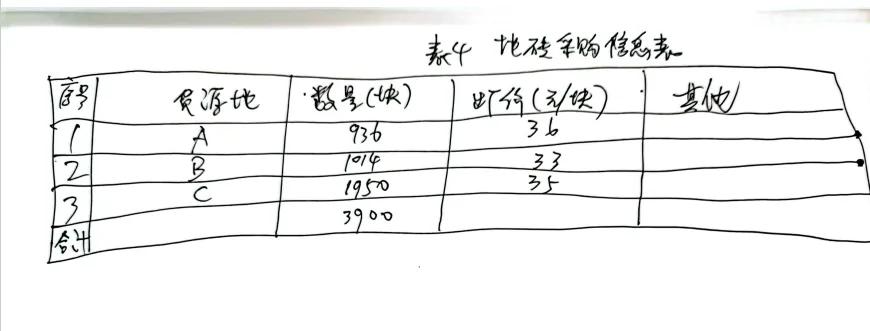 表4 地砖采购信息表
序号 货源地 数量(块) 出厂价(元/块) 其他
1 A 936 36
2 B 1014 33
3 C 1950 35
合计 3900